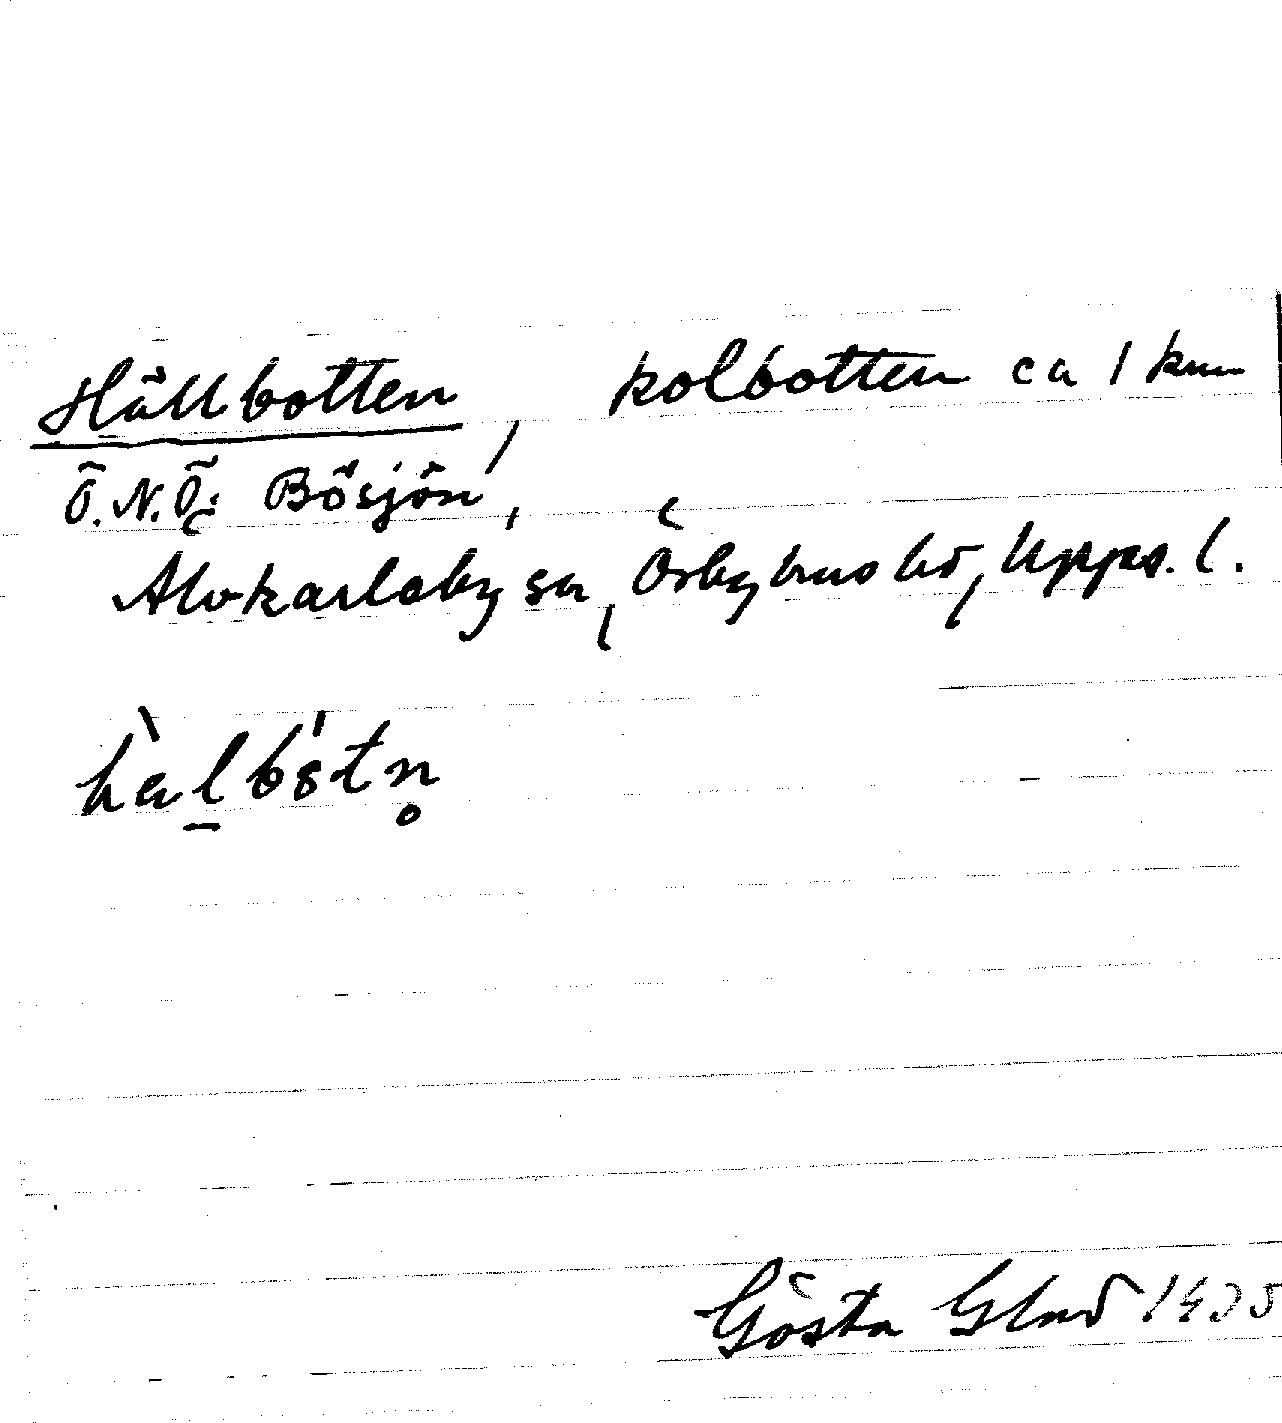 Hällbotten, kolbotten ca 1 km
Ö.N.Ö. Bösjön,
Älvkarleby sn, Örbyhus hd, Upps. l.
hàlbótn̥
Gösta Glad 1935